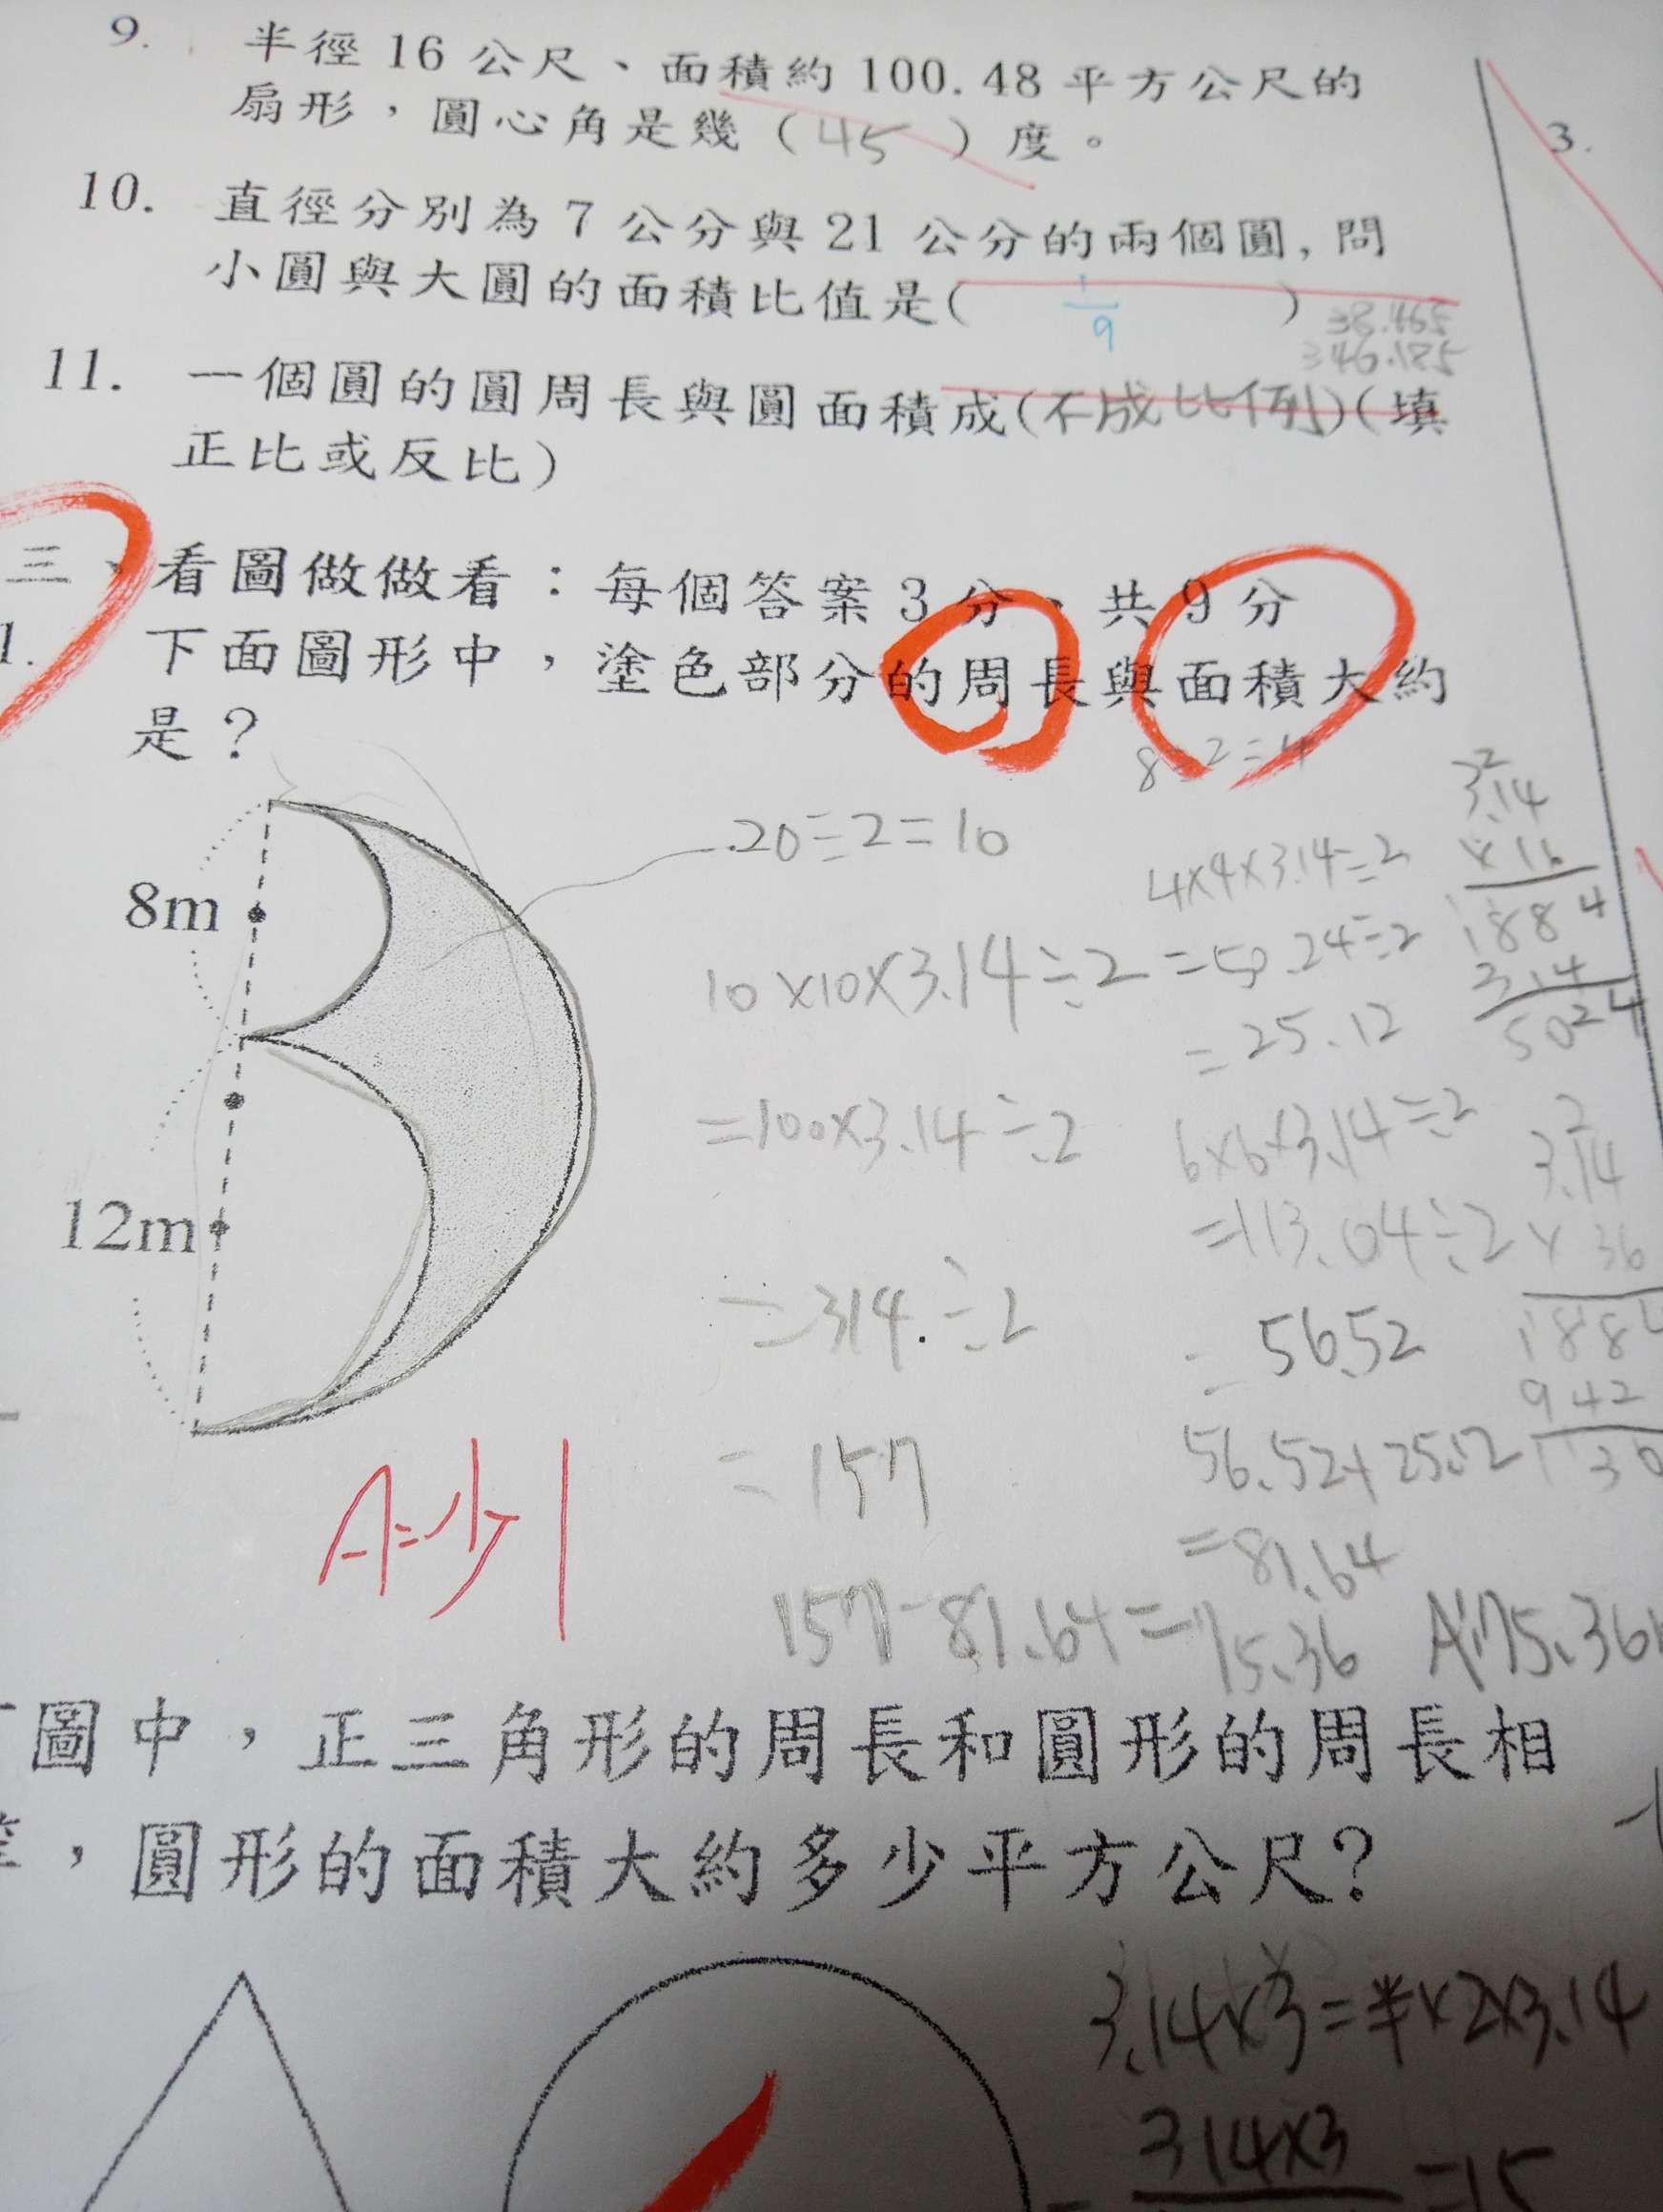 9. 半徑 16 公尺、面積約 100.48 平方公尺的
扇形，圓心角是幾（45）度。
3.
10. 直徑分別為 7 公分與 21 公分的兩個圓, 問
小圓與大圓的面積比值是( 1/9 )
38.465
346.185
11. 一個圓的圓周長與圓面積成(不成比例)(填
正比或反比)
三、看圖做做看：每個答案 3 分、共 9 分
1. 下面圖形中，塗色部分的周長與面積大約
是？
8m
12m
20÷2=10
10×10×3.14÷2
=100×3.14÷2
=314÷2
=157
8÷2=4
4×4×3.14÷2
=50.24÷2
=25.12
6×6×3.14÷2
=113.04÷2
=56.52
56.52+25.12
=81.64
157-81.64=75.36
A:75.36
3.14
×16
1884
314
5024
3.14
×36
188
942
1130
A=少1
圖中，正三角形的周長和圓形的周長相
，圓形的面積大約多少平方公尺?
3.14×3=半×2×3.14
314×3
=15